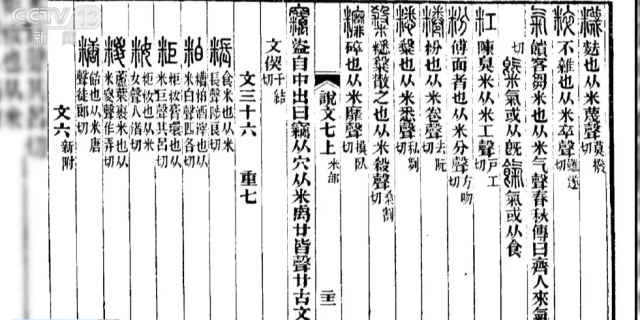 CCTV 13
新闻
麩也从米蔑聲莫撥切
不雜也从米卒聲雖遂切
氣饋客芻米也从米气聲春秋傳曰齊人來氣
切氣或从旣氣或从食
陳臭米从米工聲戶工切
粉傅面者也从米分聲方吻切
粉也从米卷聲去阮切
也从米悉聲私列切
散之也从米殺聲桑割切
碎也从米靡聲摸臥切
竊盜自中出曰竊从穴从米禼廿皆聲廿古文
說文七上 米部
文偰千結切
文三十六 重七
粻食米也从米長聲陟良切
粕糟粕酒滓也从米白聲匹各切
粔粔籹膏環也从米巨聲其呂切
籹粔籹也从米女聲人渚切
糉蘆葉裹米也从米㚇聲作弄切
糖飴也从米唐聲徒郎切
文六 新附